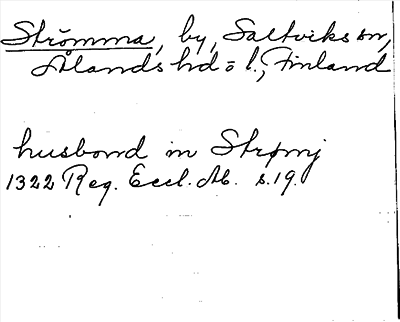 Strömma, by, Saltviks sn,
Ålands hd o l., Finland
husbond in Strømj
1322 Reg. Eccl. Ab. s. 19.